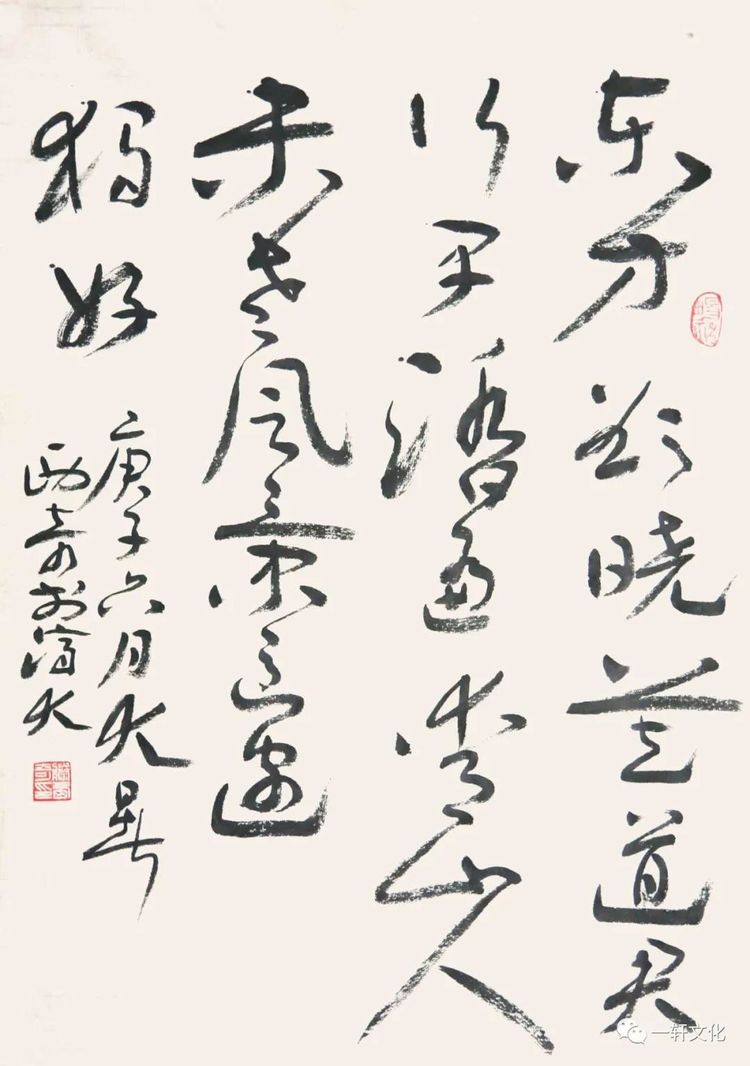 东方欲晓莫道君
行早踏遍青山人
未老风景这边
独好
庚子六月大暑
奇於济大
一轩文化